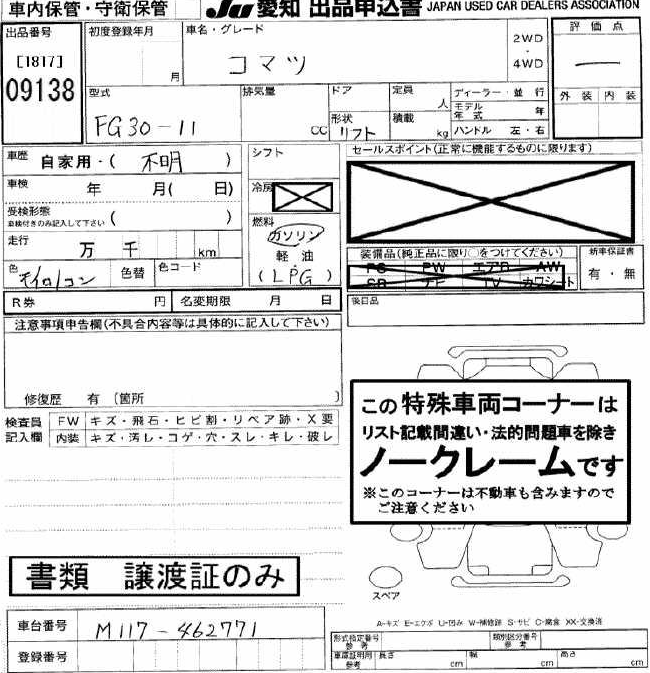 車内保管・守衛保管 JU 愛知 出品申込書 JAPAN USED CAR DEALERS ASSOCIATION
出品番号 初度登録年月 車名・グレード 2WD ・ 4WD 評価点
[1817] 月 コマツ ―
09138 型式 排気量 ドア 定員 ディーラー・並行 外装 内装
FG30-11 CC 人 モデル年式 年
形状 リフト 積載 kg ハンドル 左・右
車歴 自家用・( 不明 ) シフト セールスポイント(正常に機能するものに限ります)
車検 年 月( 日) 冷房
受検形態 車検付きのみ記入して下さい ( ) 燃料
ガソリン
走行 万 千 km 軽油 装備品(純正品に限り○をつけてください) 新車保証書
色 色替 色コード (LPG) PS PW エアB AW 有・無
SR ナビ TV カワシート
R券 円 名変期限 月 日 後日品
注意事項申告欄(不具合内容等は具体的に記入して下さい)
修復歴 有 〔箇所 〕
検査員記入欄 FW キズ・飛石・ヒビ割・リペア跡・X要
内装 キズ・汚レ・コゲ・穴・スレ・キレ・破レ
この特殊車両コーナーは
リスト記載間違い・法的問題車を除き
ノークレームです
※このコーナーは不動車も含みますので
ご注意ください
書類 譲渡証のみ
スペア
A-キズ E-エクボ U-凹み W-補修跡 S-サビ C-腐食 XX-交換済
車台番号 M117-462771
登録番号
形式指定番号 参考 類別区分番号 参考
車庫証明用 参考 長さ cm 幅 cm 高さ cm